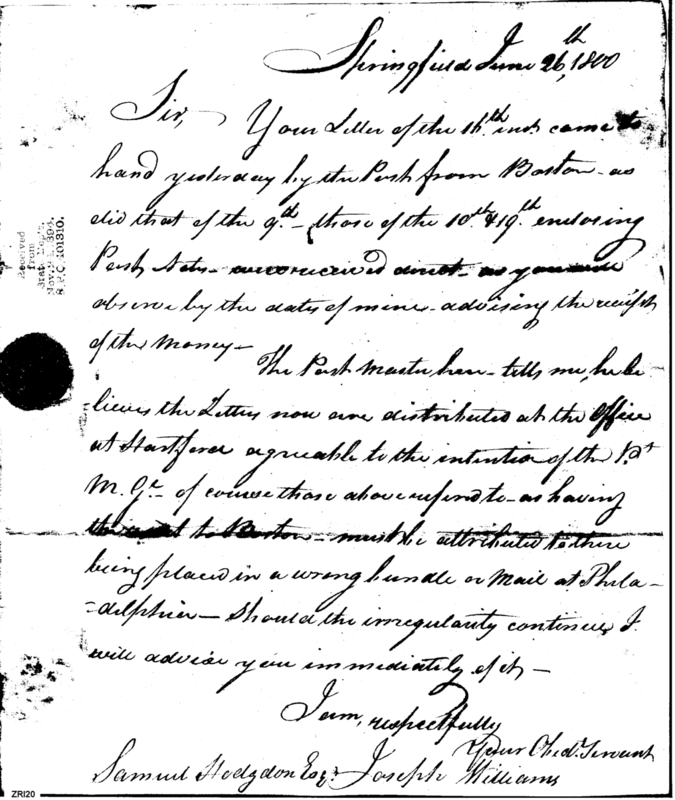 Springfield June 26th, 1800
Sir, Your Letter of the 16th inst. came to
hand yesterday by the Post from Boston - as
did that of the 9th - those of the 10th & 19th enclosing
Post Notes - were received direct - as you will
observe by the dates of mine - advising the receipt
of the Money -
The Post Master here - tells me, he be
lieves the Letters now are distributed at the Office
at Hartford agreable to the intention of the Pt
M. Gl - of course those above refered to - as having
to Boston - must be attributed to there
being placed in a wrong bundle or Mail at Phila -
- delphia - Should the irregularity continue, I
will advise you immediately of it -
I am, respectfully
Your Obedt. Servant
Samuel Hodgdon Esqr. Joseph Williams
Received
from
State Dep't.
R.P.C. 401310.
ZRI20